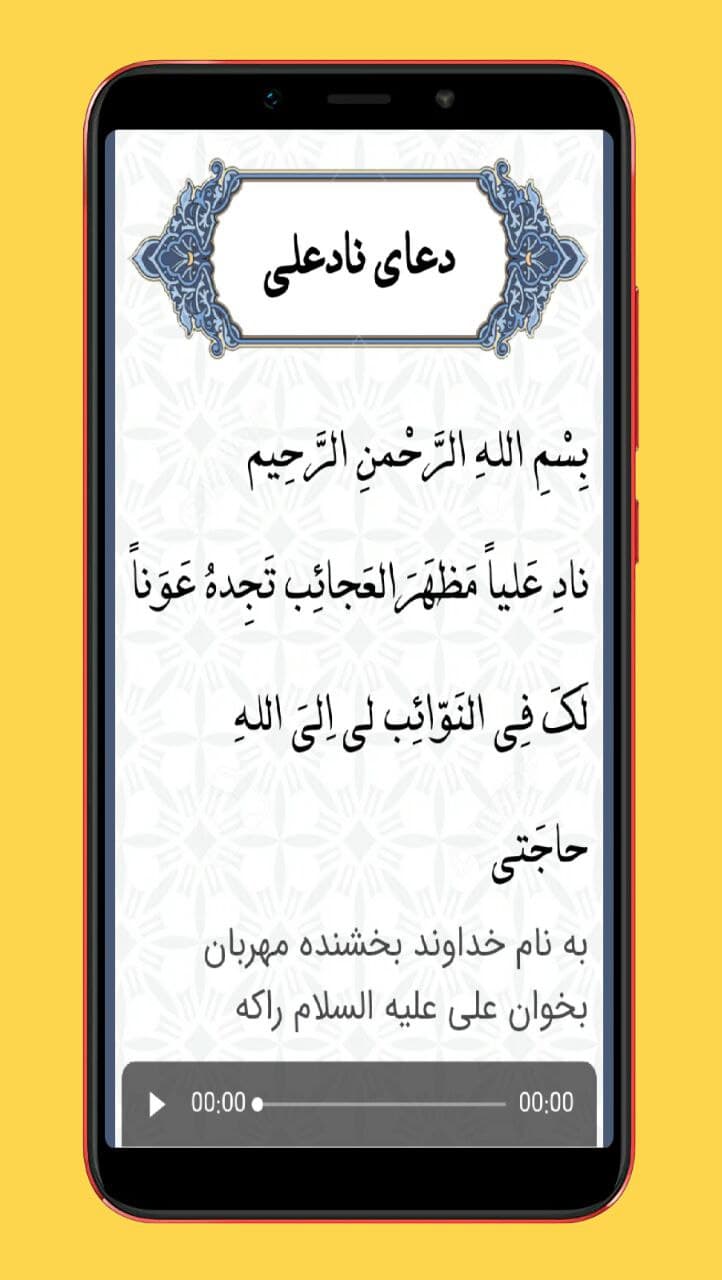 دعای نادعلی
بِسْمِ اللهِ الرَّحْمنِ الرَّحِیم
نادِ عَلیاً مَظهَرَالعَجائِب تَجِدهُ عَوَناً
لَکَ فِی النَوّائِب لی اِلیَ اللهِ
حاجَتی
به نام خداوند بخشنده مهربان
بخوان علی علیه السلام راکه
00:00 00:00